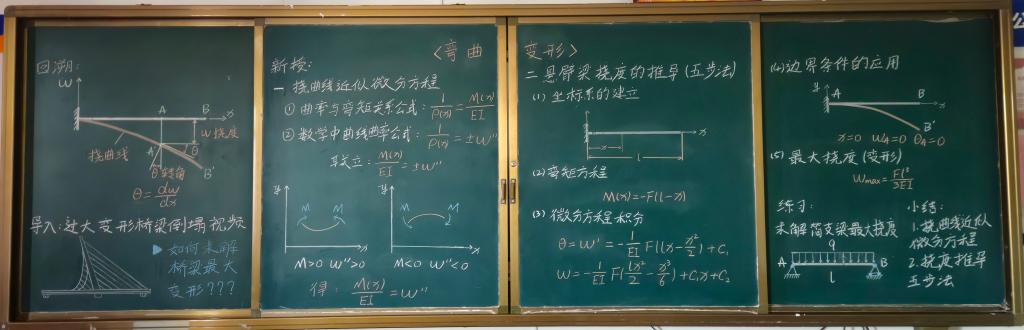 回溯:
W
A
B
x
W挠度
挠曲线
A'
θ
θ转角
B'
θ=dw/dx
导入:过大变形桥梁倒塌视频
▶如何求解
桥梁最大
变形???
<弯曲
新授:
一 挠曲线近似微分方程
①曲率与弯矩关系公式: 1/ρ(x)=M(x)/EI
②数学中曲线曲率公式: 1/ρ(x)=±W''
联立: M(x)/EI=±W''
y
M M
x
M>0 W''>0
y
M M
x
M<0 W''<0
得: M(x)/EI=W''
变形>
二 悬臂梁挠度的推导(五步法)
(1)坐标系的建立
x
x
l
(2)弯矩方程
M(x)=-F(l-x)
(3)微分方程积分
θ=W'=-1/EI F(lx-x²/2)+C₁
W=-1/EI F(lx²/2-x³/6)+C₁x+C₂
(4)边界条件的应用
y
A
B
x
B'
x=0 W_A=0 θ_A=0
(5)最大挠度(变形)
Wmax=Fl³/3EI
练习:
求解简支梁最大挠度
q
A
B
l
小结:
1.挠曲线近似
微分方程
2.挠度推导
五步法